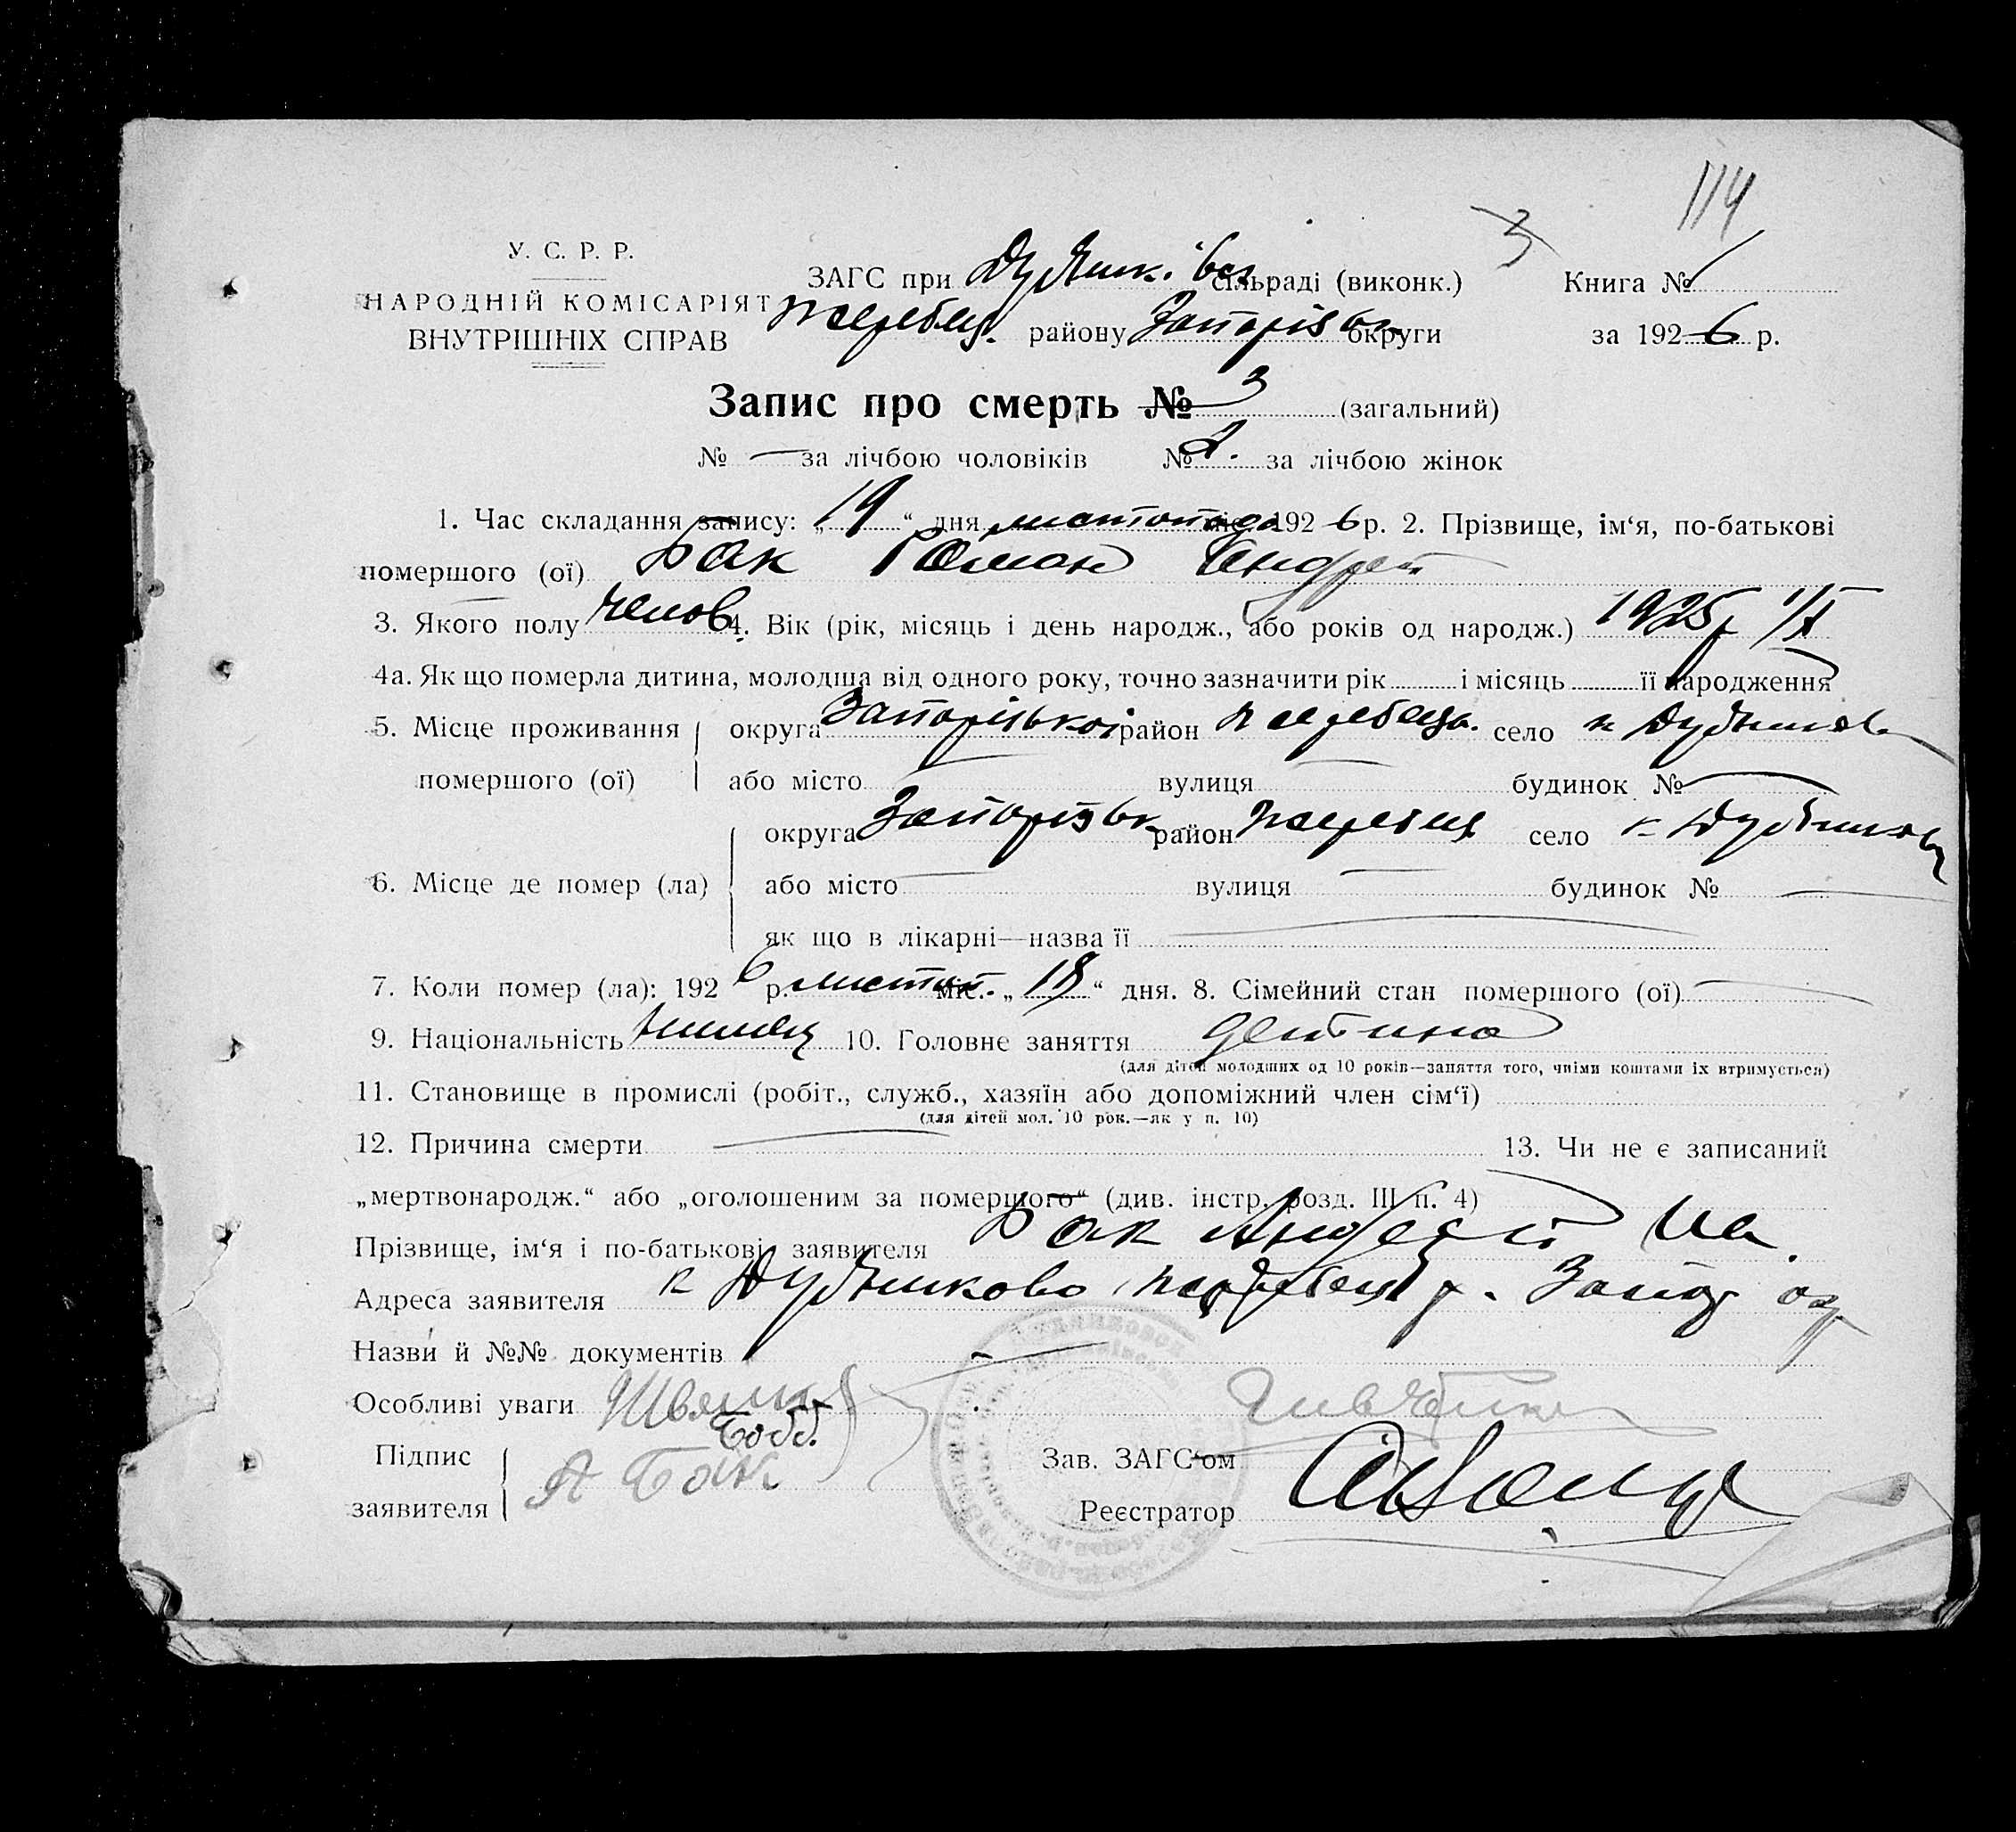 114
3
У. С. Р. Р.
НАРОДНІЙ КОМІСАРІЯТ
ВНУТРІШНІХ СПРАВ
ЗАГС при сільраді (виконк.) Книга №
Жеребец. району Запорізьк округи за 1926 р.
Запис про смерть № 3 (загальний)
№ — за лічбою чоловіків № 2. за лічбою жінок
1. Час складання запису: „19“ дня листопада міс. 1926 р. 2. Прізвище, ім‘я, по-батькові
помершого (ої) Бак Роман Андрей
3. Якого полу челов. 4. Вік (рік, місяць і день народж., або років од народж.) 1925 р 1/X
4а. Як що померла дитина, молодша від одного року, точно зазначити рік і місяць її народження
5. Місце проживання округа Запорізької район Жеребець. село
помершого (ої) або місто вулиця будинок №
округа Запорізьк район Жеребец село
6. Місце де помер (ла) або місто вулиця будинок №
як що в лікарні—назва її
7. Коли помер (ла): 1926 р. листоп. міс. „18“ дня. 8. Сімейний стан помершого (ої) —
9. Національність 10. Головне заняття дитина
(для дітей молодших од 10 років—заняття того, чиїми коштами їх втримується)
11. Становище в промислі (робіт., служб., хазяїн або допоміжний член сім‘ї)
(для дітей мол. 10 рок.—як у п. 10)
12. Причина смерти — 13. Чи не є записаний
„мертвонародж.“ або „оголошеним за помершого“ (див. інстр. розд. III п. 4)
Прізвище, ім‘я і по-батькові заявителя Бак Андрей Ив.
Адреса заявителя к Жеребец р. Запор окр
Назви й №№ документів
Особливі уваги
Підпис
заявителя А Бак
Зав. ЗАГС‘ом
Реєстратор